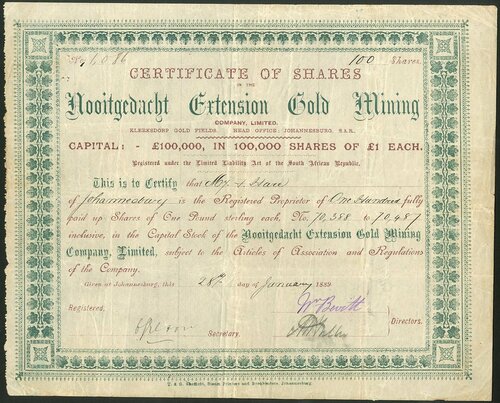 100 Shares.
CERTIFICATE OF SHARES
IN THE
Nooitgedacht Extension Gold Mining
COMPANY, LIMITED.
KLERKSDORP GOLD FIELDS. HEAD OFFICE: JOHANNESBURG, S.A.R.
CAPITAL: - £100,000, IN 100,000 SHARES OF £1 EACH.
Registered under the Limited Liability Act of the South African Republic.
This is to Certify that
of Johannesburg is the Registered Proprietor of One Hundred fully
paid up Shares of One Pound sterling each, No. 70,388 to 70,487
inclusive, in the Capital Stock of the Nooitgedacht Extension Gold Mining
Company, Limited, subject to the Articles of Association and Regulations
of the Company.
Given at Johannesburg, this 28th day of January 1889
Registered,
Secretary.
Directors.
Steam Printers and Bookbinders Johannesburg.